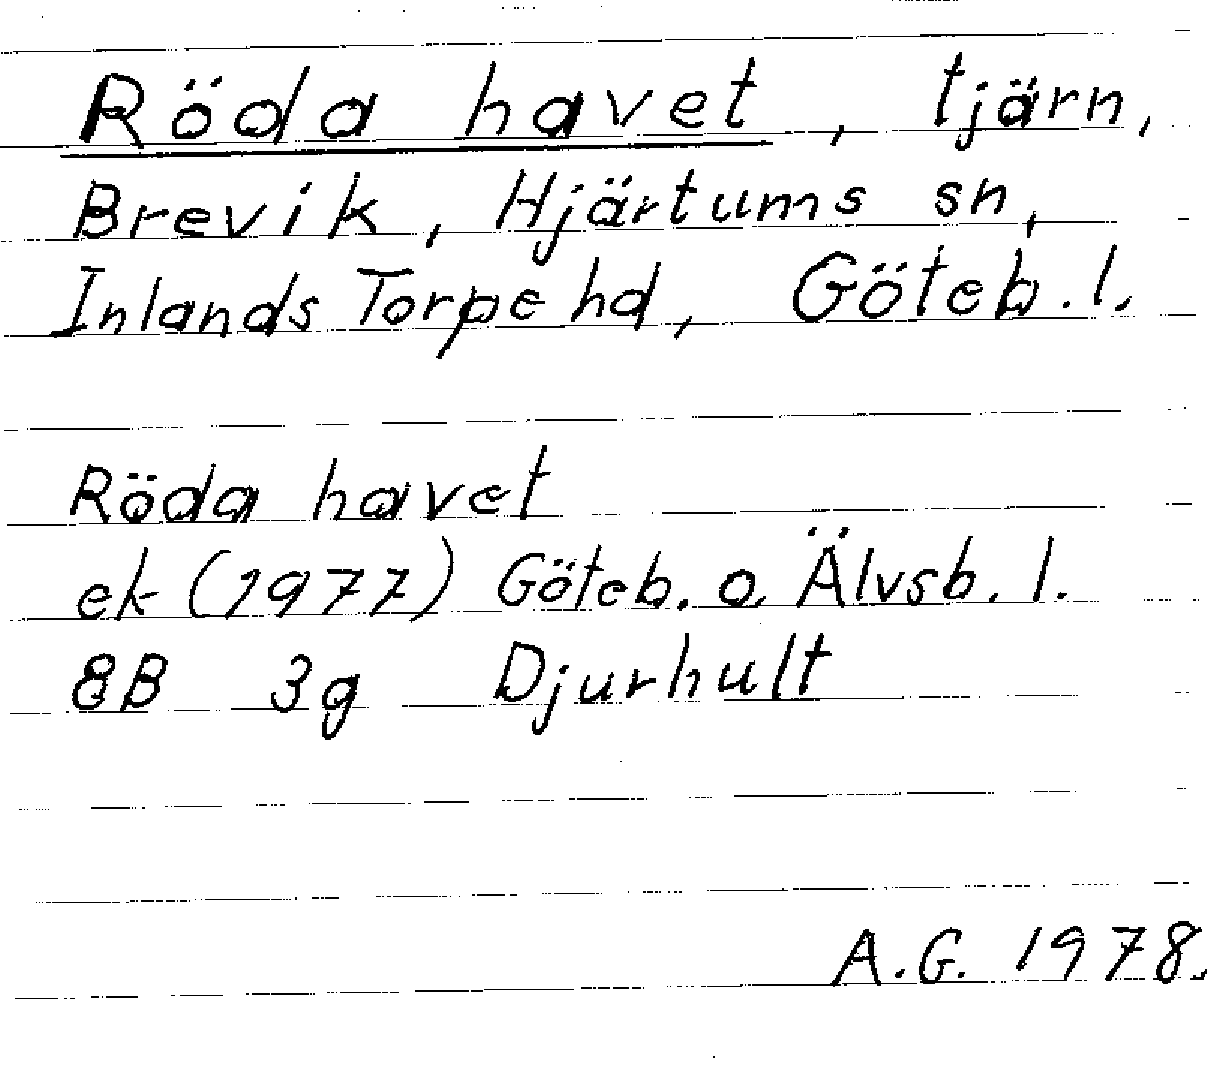 Röda havet, tjärn,
Brevik, Hjärtums sn,
Inlands Torpe hd, Göteb. l.
Röda havet
ek (1977) Göteb. o. Älvsb. l.
8B 3g Djurhult
A.G. 1978.